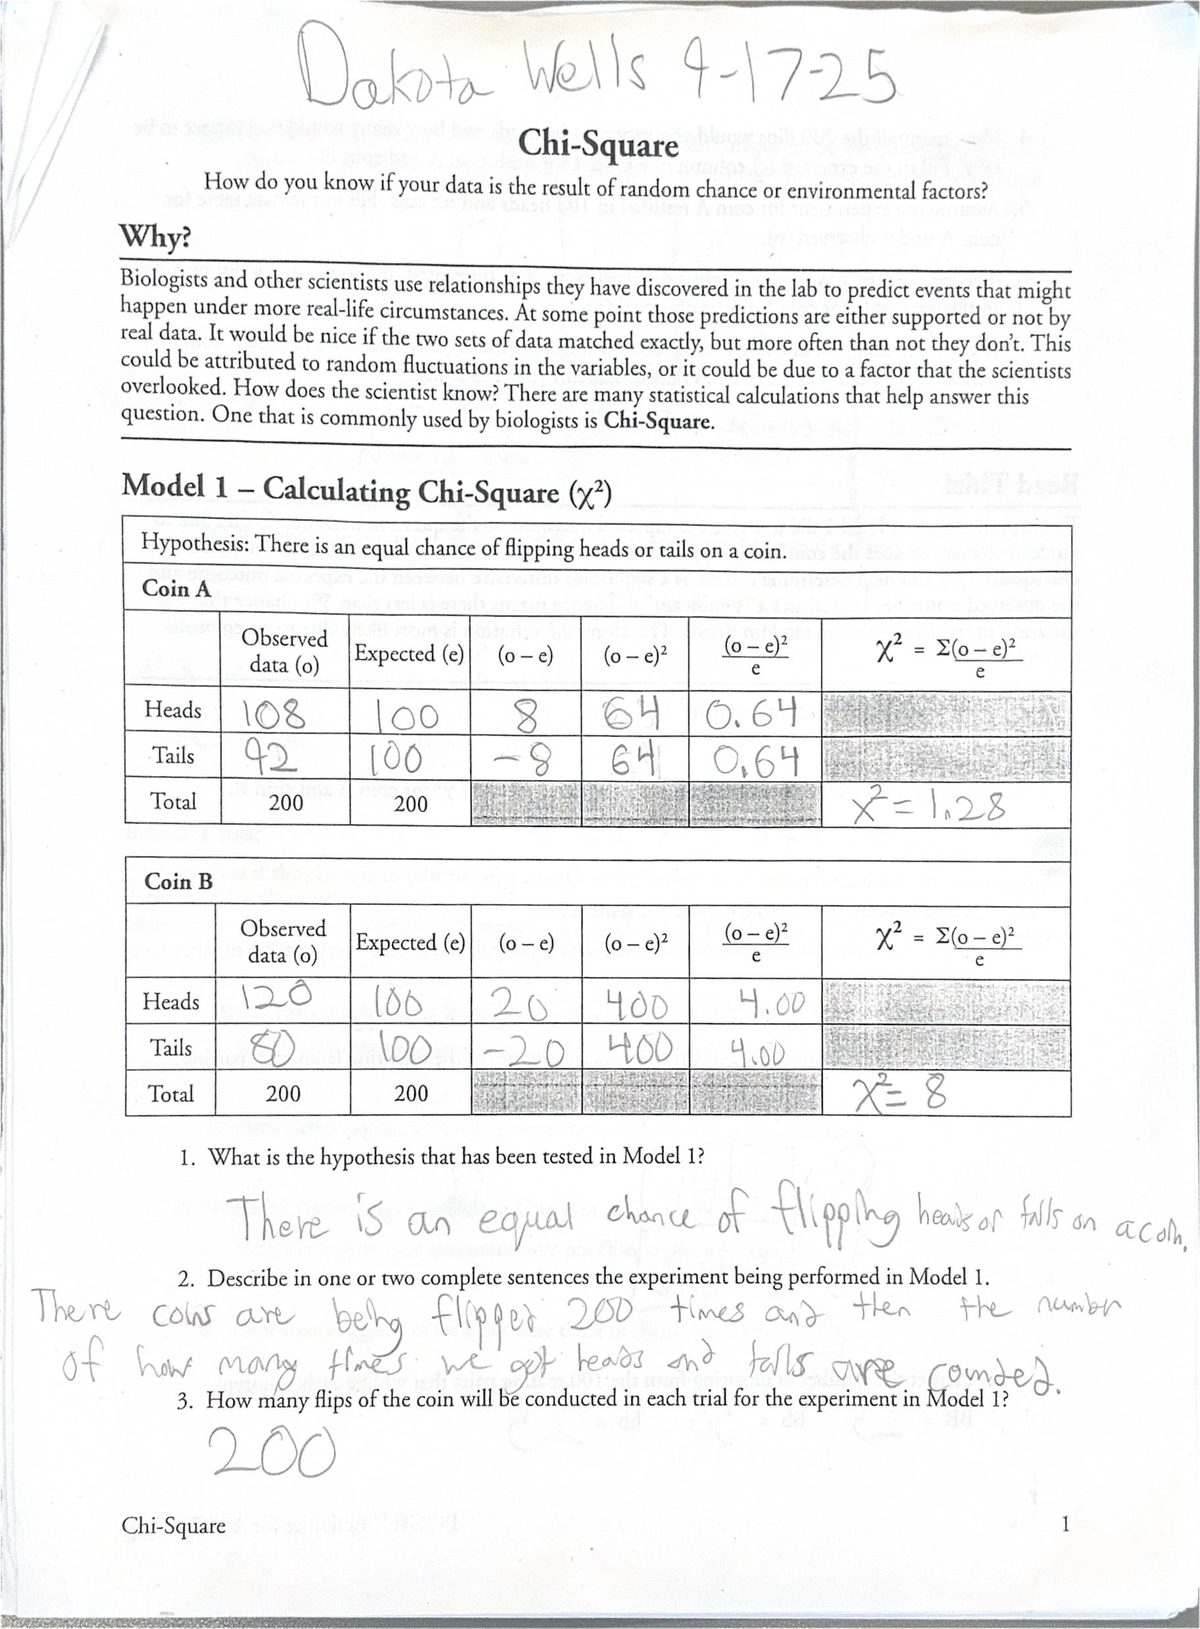 Dakota Wells 4-17-25
Chi-Square
How do you know if your data is the result of random chance or environmental factors?
Why?
Biologists and other scientists use relationships they have discovered in the lab to predict events that might
happen under more real-life circumstances. At some point those predictions are either supported or not by
real data. It would be nice if the two sets of data matched exactly, but more often than not they don't. This
could be attributed to random fluctuations in the variables, or it could be due to a factor that the scientists
overlooked. How does the scientist know? There are many statistical calculations that help answer this
question. One that is commonly used by biologists is Chi-Square.
Model 1 – Calculating Chi-Square (χ²)
Hypothesis: There is an equal chance of flipping heads or tails on a coin.
Coin A
Observed data (o) Expected (e) (o – e) (o – e)² (o – e)²/e χ² = Σ(o – e)²/e
Heads 108 100 8 64 0.64
Tails 92 100 -8 64 0.64
Total 200 200 X²= 1.28
Coin B
Observed data (o) Expected (e) (o – e) (o – e)² (o – e)²/e χ² = Σ(o – e)²/e
Heads 120 100 20 400 4.00
Tails 80 100 -20 400 4.00
Total 200 200 X²= 8
1. What is the hypothesis that has been tested in Model 1?
There is an equal chance of flipping heads or tails on a coin.
2. Describe in one or two complete sentences the experiment being performed in Model 1.
There coins are being flipped 200 times and then the number
of how many times we got heads and tails are counted.
3. How many flips of the coin will be conducted in each trial for the experiment in Model 1?
200
Chi-Square 1